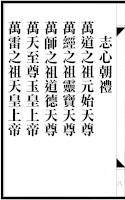 志心朝禮
萬道之祖元始天尊
萬經之祖靈寶天尊
萬師之祖道德天尊
萬天至尊玉皇上帝
萬雷之祖天皇上帝